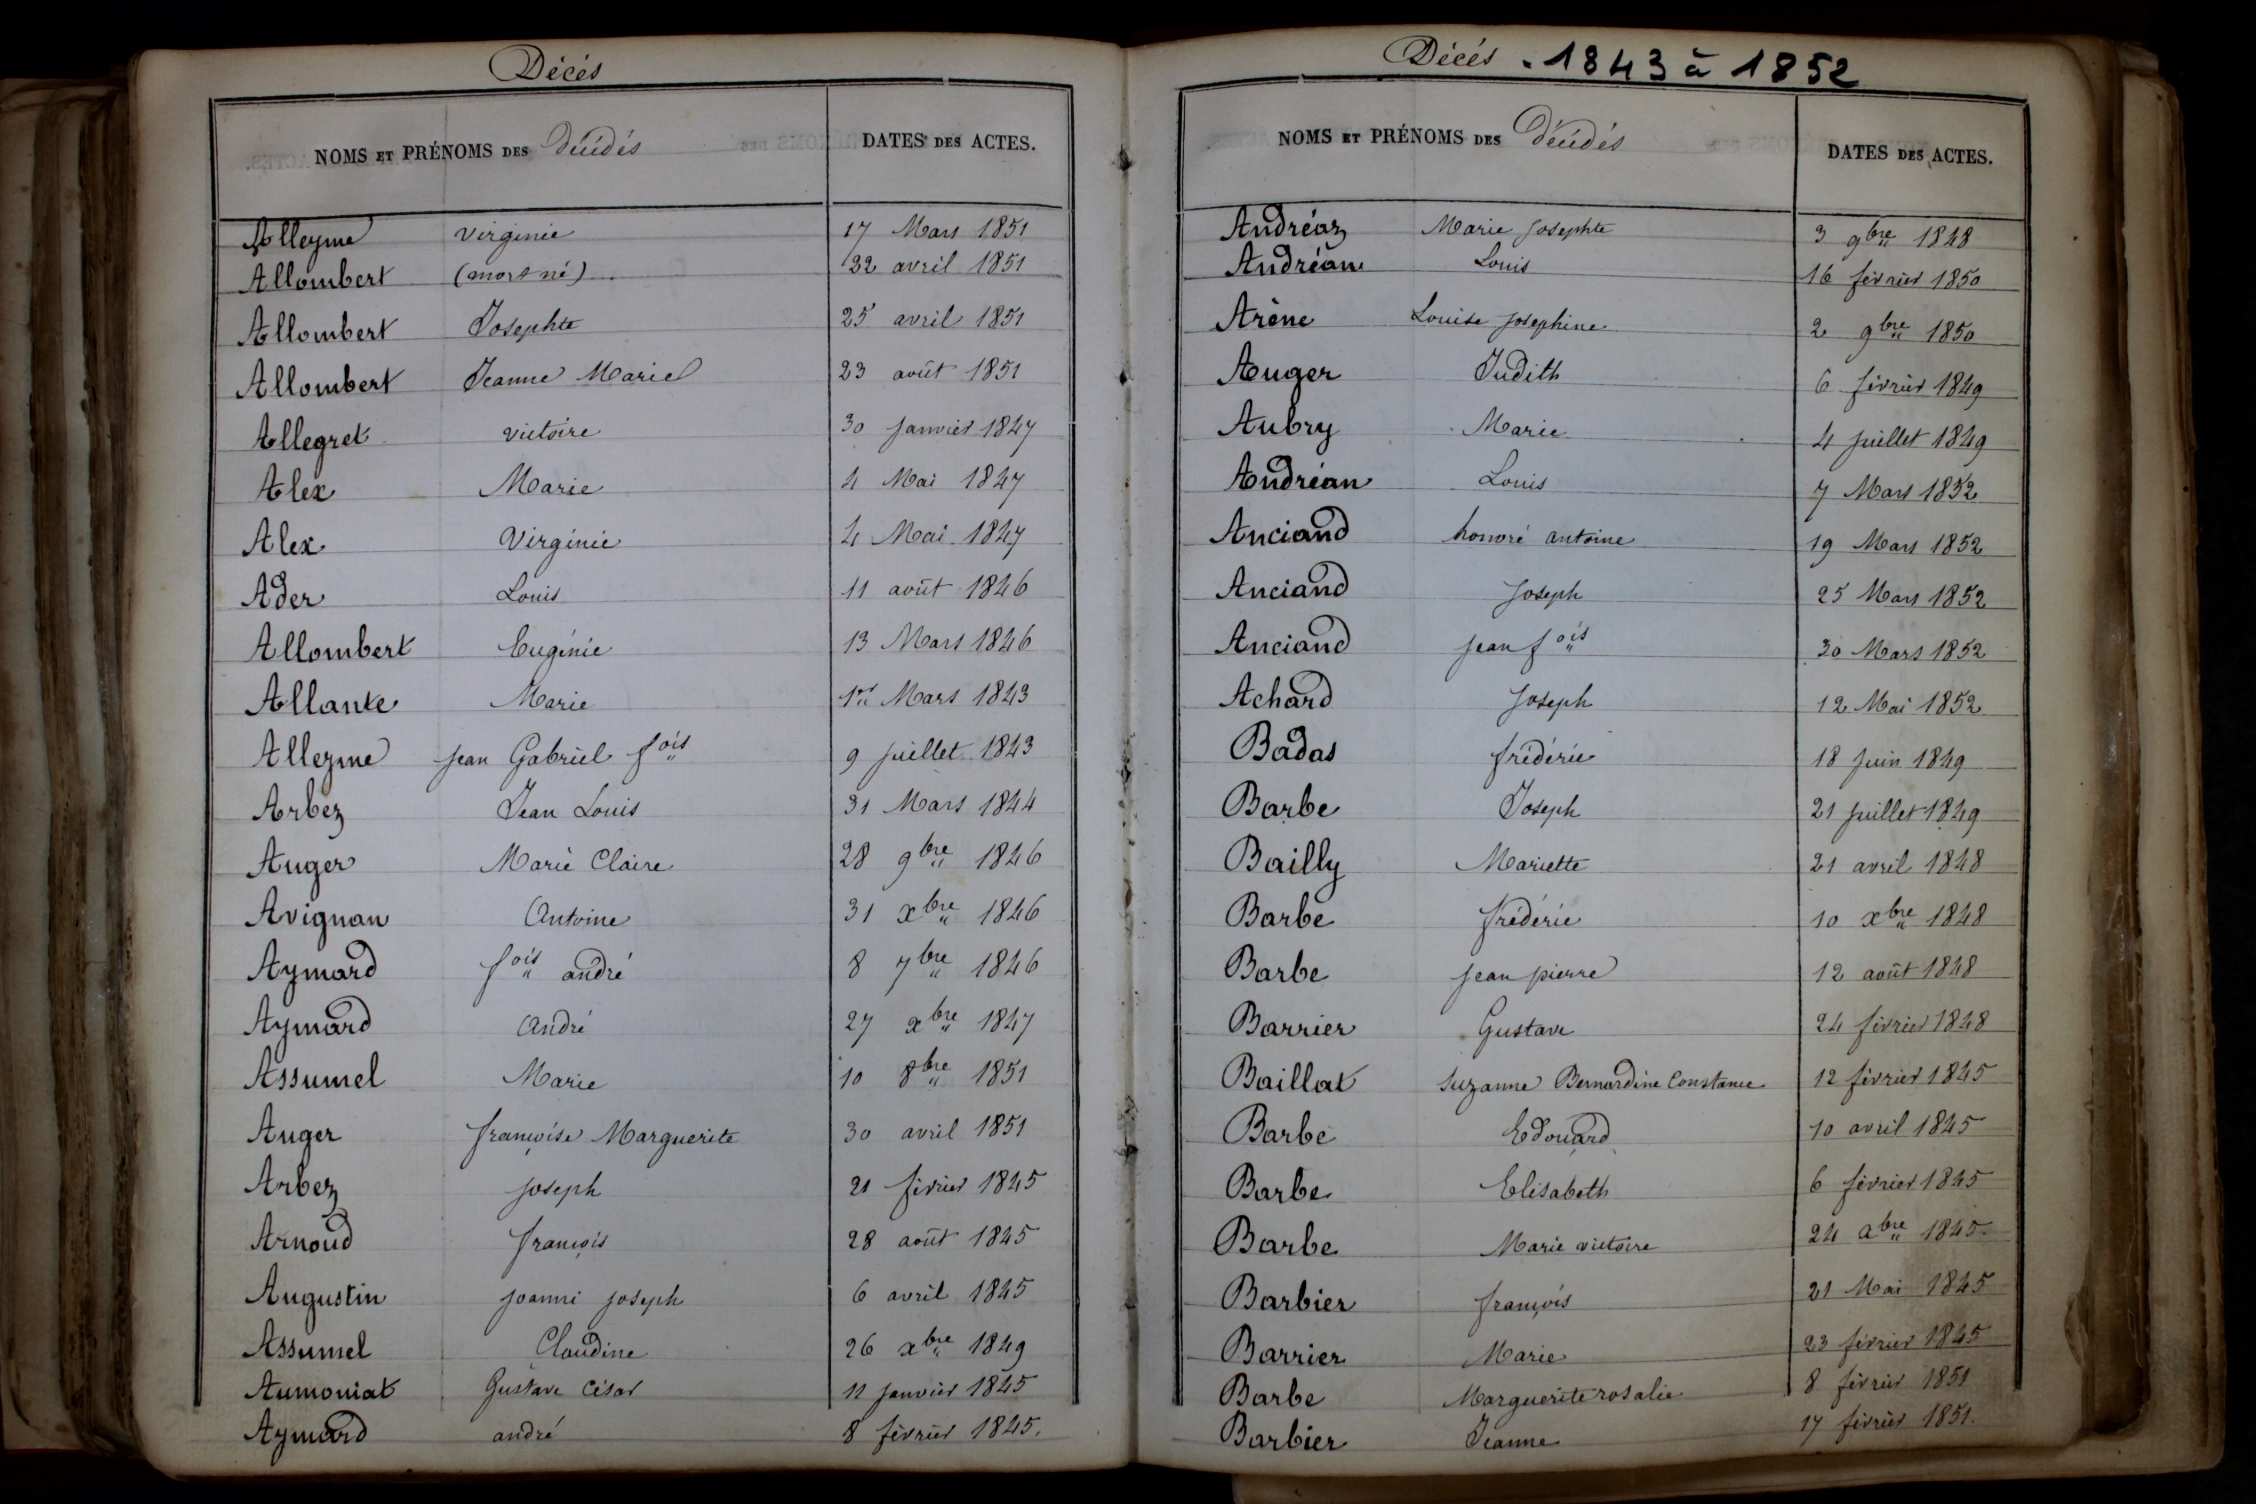 Décés
NOMS ET PRÉNOMS DES Décédés DATES DES ACTES.
Alleyme Virginie 17 Mars 1851
Allombert (mort né) 22 avril 1851
Allombert Josephte 25 avril 1851
Allombert Jeanne Marie 23 août 1851
Allegret victoire 30 Janvier 1847
Alex Marie 4 Mai 1847
Alex Virginie 4 Mai 1847
Ader Louis 11 août 1846
Allombert Eugénie 13 Mars 1846
Allante Marie 1er Mars 1843
Alleyme Jean Gabriel fois 9 Juillet 1843
Arbez Jean Louis 31 Mars 1844
Auger Marie Claire 28 9bre 1846
Avignan Antoine 31 xbre 1846
Aymard fois andré 8 7bre 1846
Aymard André 27 xbre 1847
Assumel Marie 10 8bre 1851
Auger françoise Marguerite 30 avril 1851
Arbez Joseph 21 février 1845
Arnoud françois 28 août 1845
Augustin Joanni Joseph 6 avril 1845
Assumel Claudine 26 xbre 1849
Aumoniat Gustave César 11 Janvier 1845
Aymard andré 8 février 1845.
Décés . 1843 à 1852
NOMS ET PRÉNOMS DES Décédés DATES DES ACTES.
Andréaz Marie Josephte 3 9bre 1848
Andréan Louis 16 février 1850
Arène Louise Josephine 2 9bre 1850
Auger Judith 6 février 1849
Aubry Marie 4 Juillet 1849
Andréan Louis 7 Mars 1852
Anciand honoré antoine 19 Mars 1852
Anciand Joseph 25 Mars 1852
Anciand Jean fois 30 Mars 1852
Achard Joseph 12 Mai 1852
Badas frédéric 18 Juin 1849
Barbe Joseph 21 Juillet 1849
Bailly Mariette 21 avril 1848
Barbe frédéric 10 xbre 1848
Barbe Jean pierre 12 août 1848
Barrier Gustave 24 février 1848
Baillat Suzanne Bernardine Constance 12 février 1845
Barbe Edouard 10 avril 1845
Barbe Elisabeth 6 février 1845
Barbe Marie victoire 24 xbre 1845
Barbier françois 21 Mai 1845
Barrier Marie 23 février 1845
Barbe Marguerite rosalie 8 février 1851
Barbier Jeanne 17 février 1851.